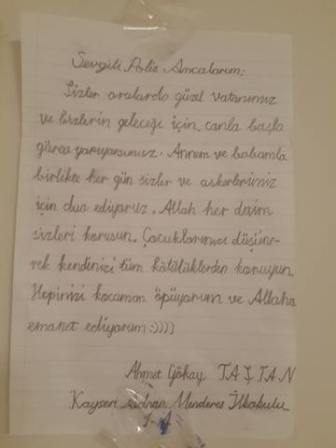 Sevgili Polis Amcalarım;
Sizler oralarda güzel vatanımız
ve bizlerin geleceği için, canla başla
görev yapıyorsunuz. Annem ve babamla
birlikte her gün sizler ve askerlerimiz
için dua ediyoruz. Allah her daim
sizleri korusun. Çocuklarınızı düşüne-
rek kendinizi tüm kötülüklerden koruyun.
Hepinizi kocaman öpüyorum ve Allaha
emanet ediyorum :))))
Ahmet Gökay TAŞTAN
Kayseri Adnan Menderes İlkokulu